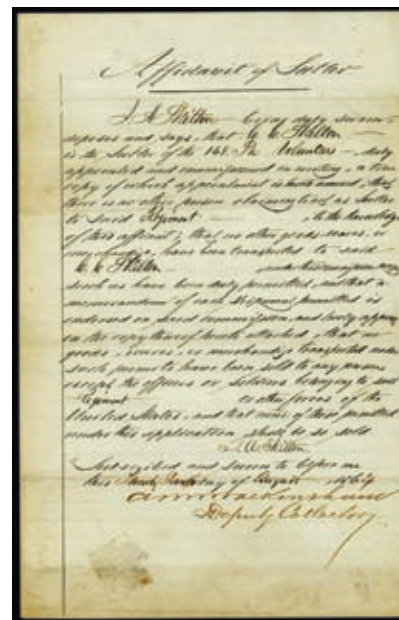 Affidavit of Sutler
J. A. Skilton being duly sworn
deposes and says, that G. C. Skilton
is the Sutler of the 148. Pa Volunteers duly
appointed and commissioned in writing, a true
copy of which appointment is annexed, that
there is no other person claiming to act as Sutler
to said Regiment to the knowledge
of this affiant; that no other goods wares, or
merchandize have been transported to said
C. C. Skilton
such as have been duly permitted, and that a
memorandum of each shipment permitted is
endorsed on said commission, and truly appears
on the copy thereof hereto attached, that no
goods, wares, or merchandize transported under
such permits have been sold to any person
except the officers or soldiers belonging to said
Regiment or other forces of the
United States, and that none of those permitted
under this application shall be so sold
J. A. Skilton
Subscribed and sworn to before me
this day of August 1864
Deputy Collector